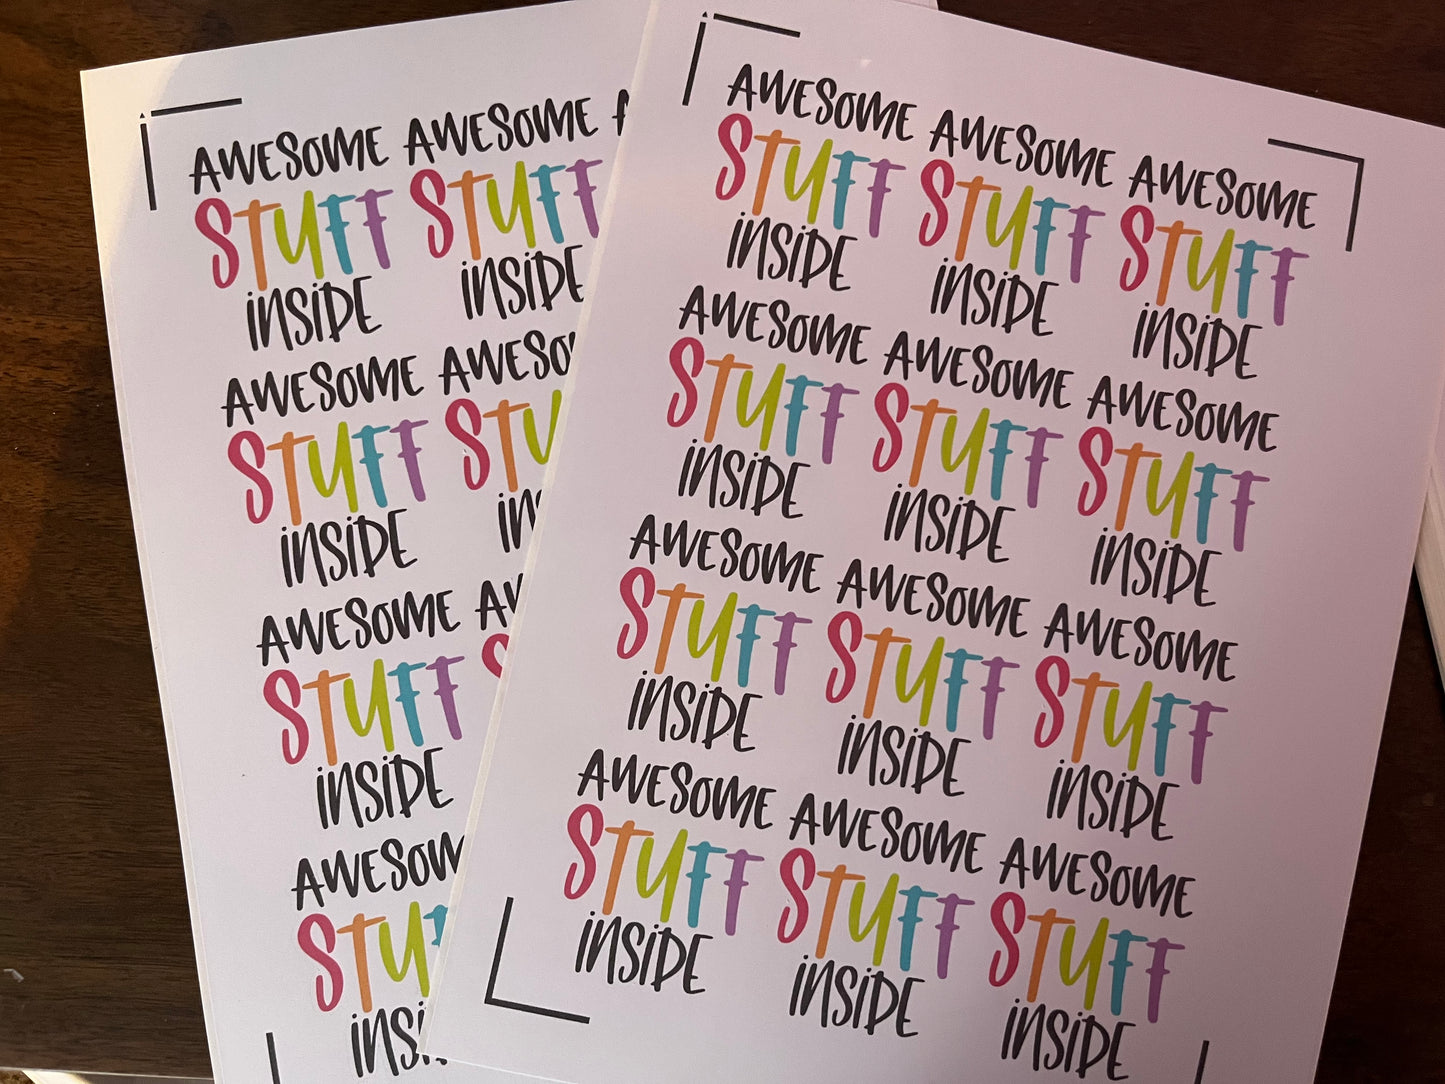 AWESOME AWESOME
STUFF STUFF
INSIDE INSIDE
AWESOME AWESO
STUFF STU
INSIDE IN
AWESOME AW
STUFF S
INSIDE
AWESOM
STUF
INSI
AWESOME AWESOME AWESOME
STUFF STUFF STUFF
INSIDE INSIDE INSIDE
AWESOME AWESOME AWESOME
STUFF STUFF STUFF
INSIDE INSIDE INSIDE
AWESOME AWESOME AWESOME
STUFF STUFF STUFF
INSIDE INSIDE INSIDE
AWESOME AWESOME AWESOME
STUFF STUFF STUFF
INSIDE INSIDE INSIDE